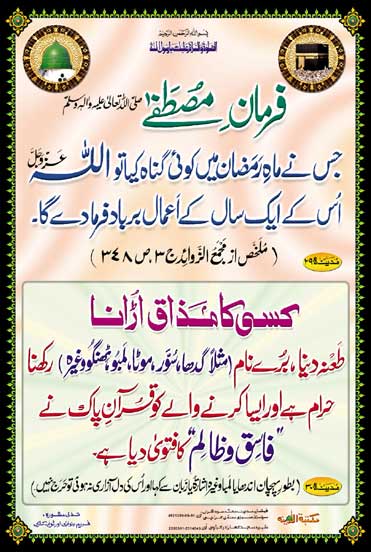 بسم اللہ الرحمن الرحیم
الصلوٰۃ والسلام علیک یا رسول اللہ
فرمانِ مصطفٰے صلی اللہ تعالیٰ علیہ والہ وسلم
جس نے ماہِ رمضان میں کوئی گناہ کیا تو اللہ عزوجل
اُس کے ایک سال کے اعمال برباد فرما دے گا۔
(مُلخص از مجمع الزّوائد ج ۳، ص ۳۴۸)
کسی کا مذاق اُڑانا
طعنہ دینا، بُرے نام (مثلاً گدھا، سُوَر، موٹا، لمبو، ٹھنگو وغیرہ) رکھنا
حرام ہے اور ایسا کرنے والے کو قرآنِ پاک نے
"فاسق و ظالم" کا فتویٰ دیا ہے۔
(بطورِ پہچان اندھا یا لمبا وغیرہ اشارتاً یا زبان سے کہا اور اُس کی دل آزاری نہ ہوتی تو حرج نہیں)
مکتبۃ المدینہ